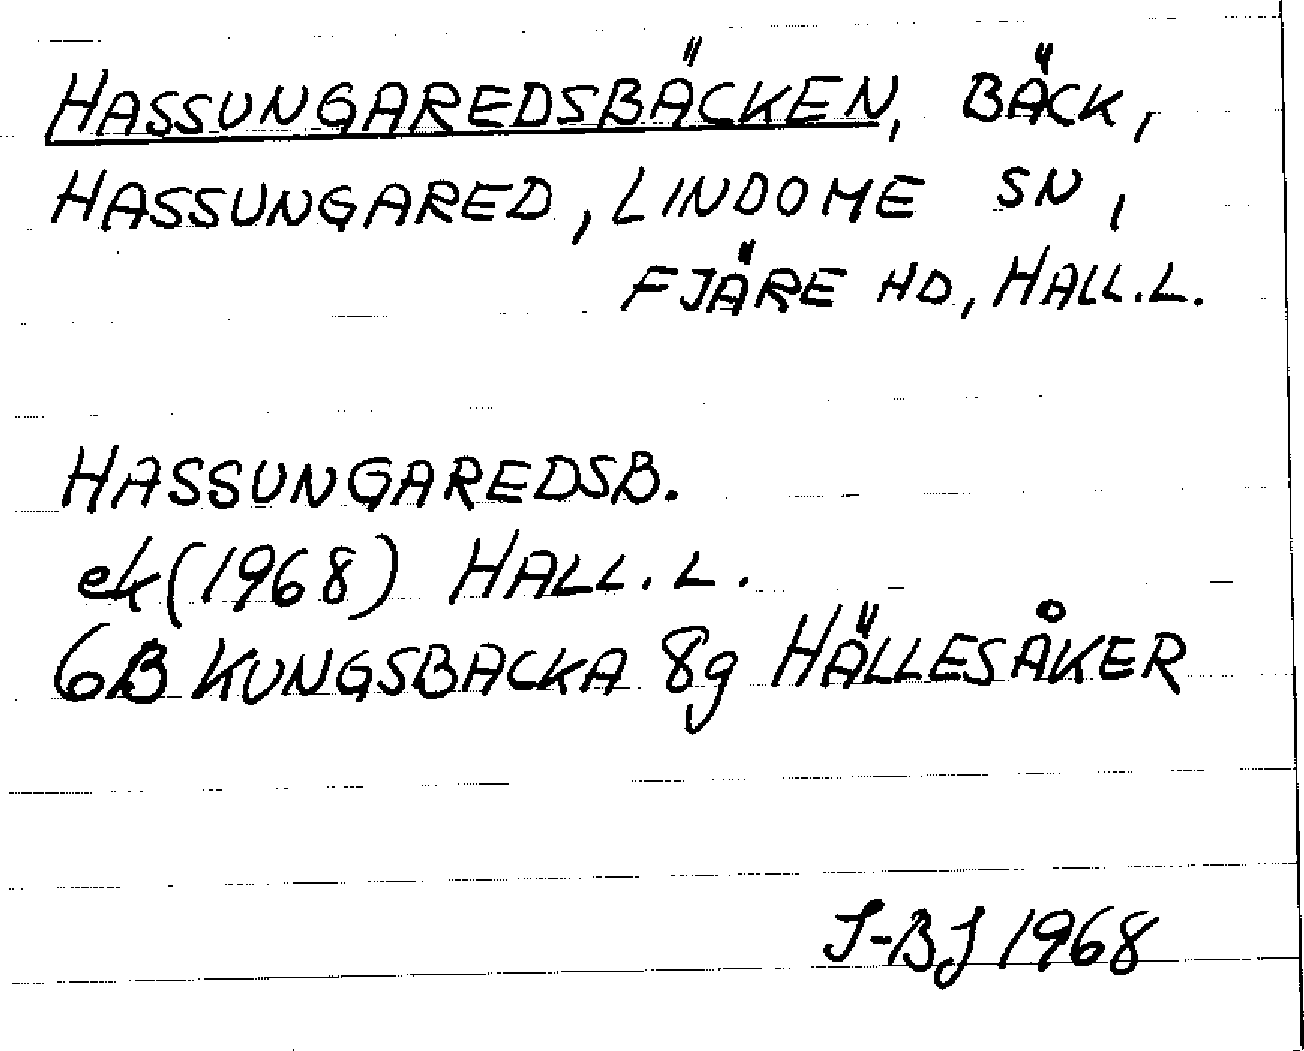 HASSUNGAREDSBÄCKEN, BÄCK,
HASSUNGARED, LINDOME SN,
FJÄRE HD, HALL.L.
HASSUNGAREDSB.
ek (1968) HALL.L.
6B KUNGSBACKA 8g HÄLLESÅKER
I-BJ 1968